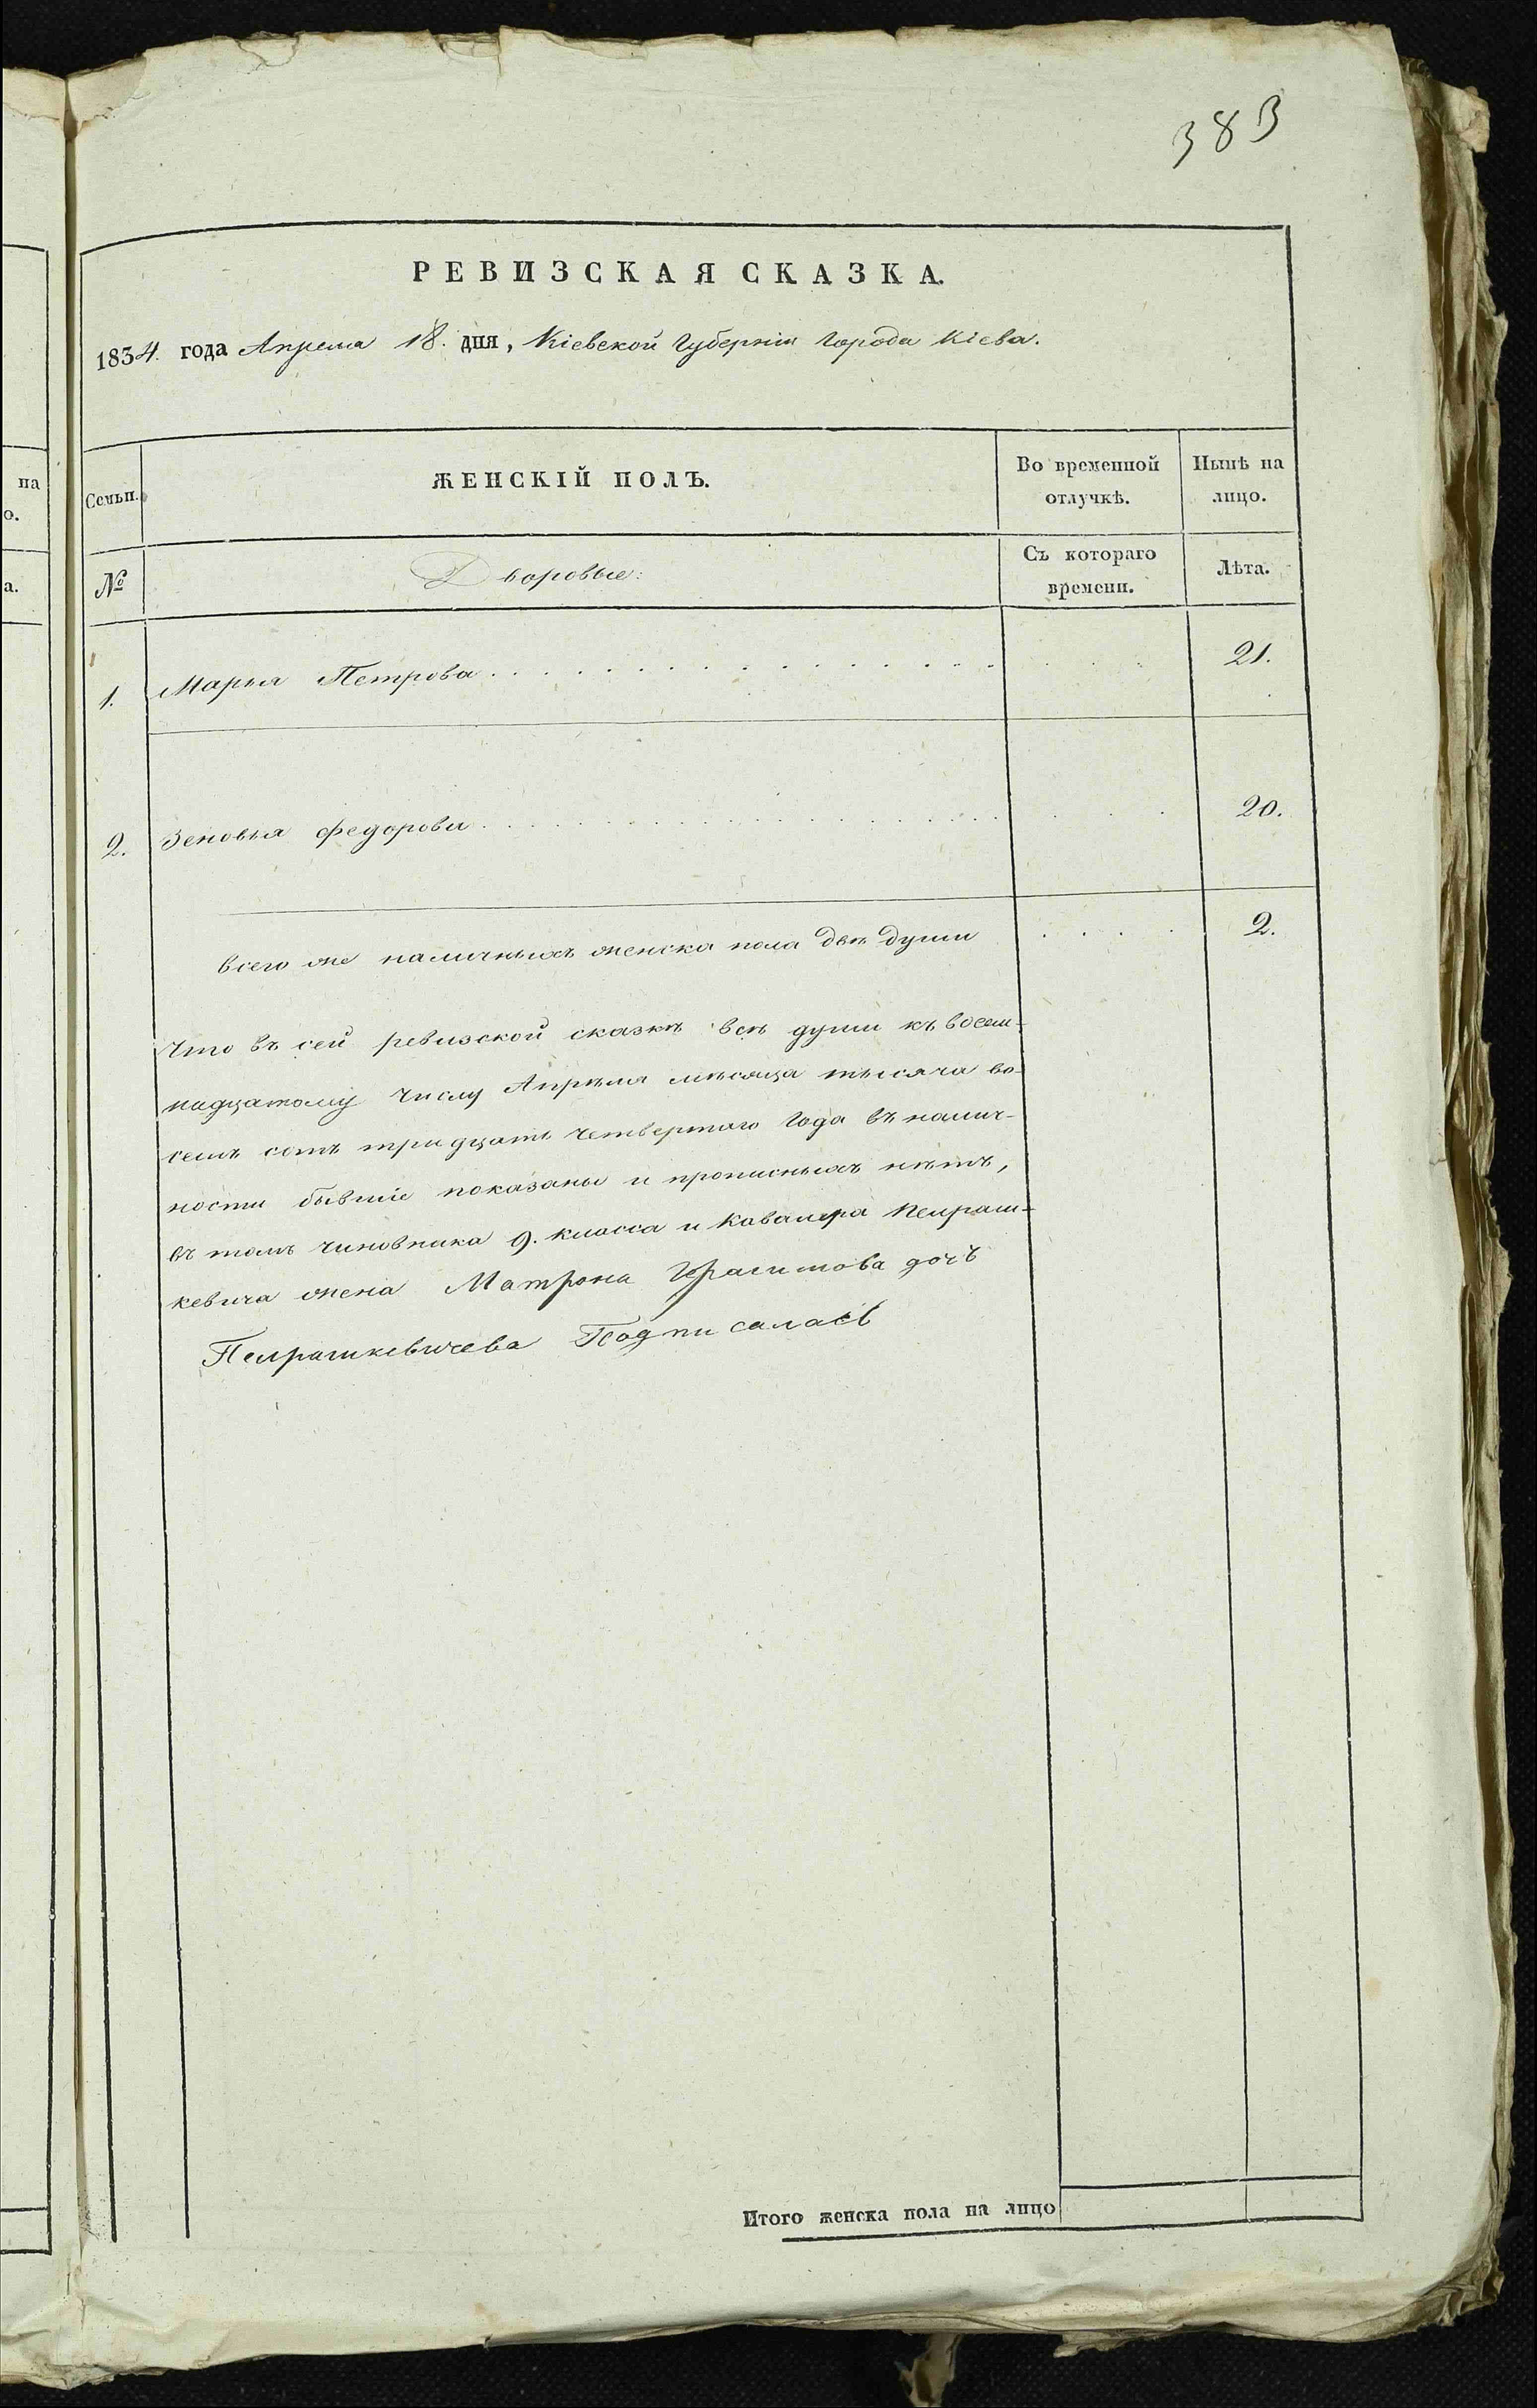 383
РЕВИЗСКАЯ СКАЗКА.
1834. года Апреля 18. дня, Кіевской Губерніи Города Кіева.
на
о.
а.
Семьи.
ЖЕНСКІЙ ПОЛЪ.
Во временной отлучкѣ.
Нынѣ на лицо.
№
Дворовые:
Съ котораго времени.
Лѣта.
1. Марья Петрова 21.
2. Зеновья Федорова 20.
всего же наличныхъ женска пола двѣ души 2.
Что въ сей ревизской сказкѣ всѣ души къ восем-
надцатому числу Апрѣля мѣсяца тысяча во-
семъ сотъ тридцать четвертаго Года въ налич-
ности бывшіе показаны и прописныхъ нѣтъ,
въ томъ чиновника 9. класса и Кавалера
кевича жена Матрона Герасимова дочъ
Подписаласъ
Итого женска пола на лицо